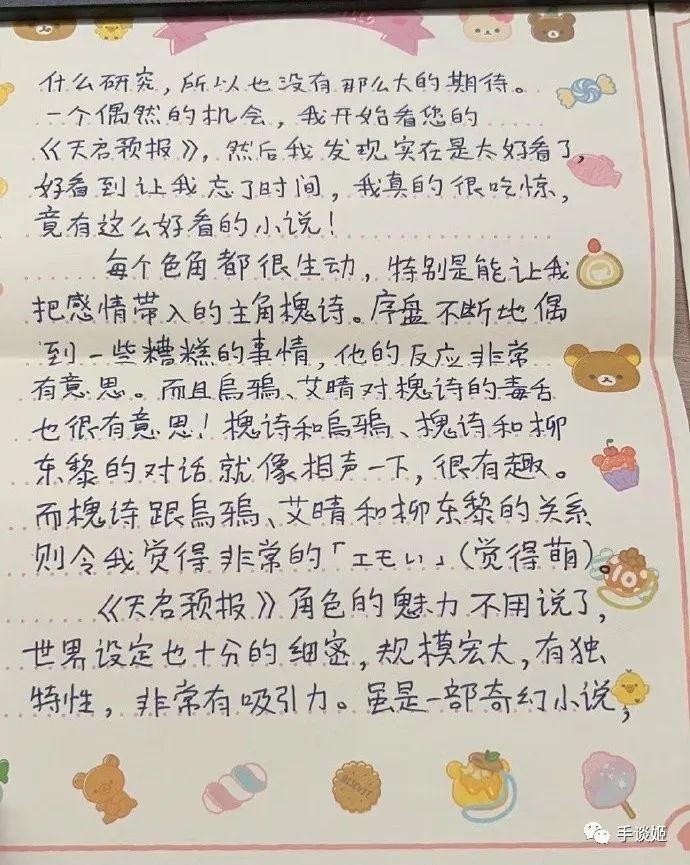 什么研究，所以也没有那么大的期待。
一个偶然的机会，我开始看您的
《天启预报》，然后我发现实在是太好看了
好看到让我忘了时间，我真的很吃惊，
竟有这么好看的小说！
每个色角都很生动，特别是能让我
把感情带入的主角槐诗。序盘不断地偶
到一些糟糕的事情，他的反应非常
有意思。而且烏鴉、艾晴对槐诗的毒舌
也很有意思！槐诗和烏鴉、槐诗和柳
东黎的对话就像相声一下，很有趣。
而槐诗跟烏鴉、艾晴和柳东黎的关系
则令我觉得非常的「エモい」（觉得萌）。
《天启预报》角色的魅力不用说了，
世界设定也十分的细密，规模宏大，有独
特性，非常有吸引力。虽是一部奇幻小说，
BISCUIT
手谈姬